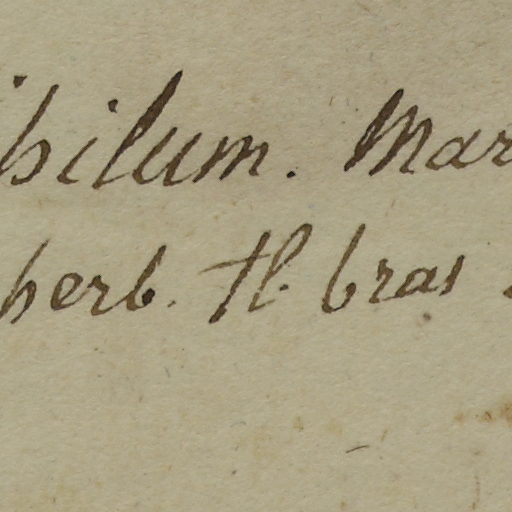 ihilum. Mar
herb. fl. bras